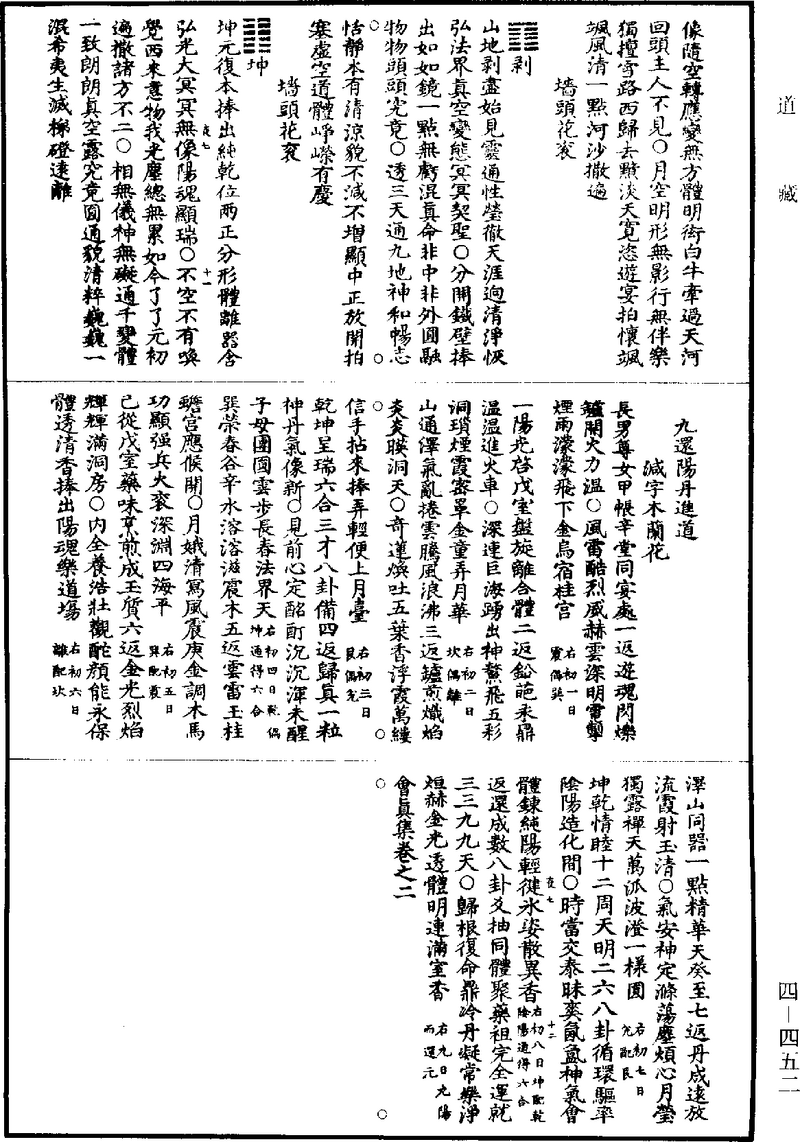 道藏
像隨空轉應變無方體明街白牛牽過天河
回頭主人不見○月空明形無影行無伴樂
獨擅雪路西歸去黲淡天寬恣遊宴拍懷颯
颯風清一點河沙撒遍
墻頭花衮
剥
山地剥盡始見靈通性瑩徹天涯迥清淨恢
弘法界真空變態冥冥契聖○分開鐵壁捧
出如如鏡一點無虧混真命非中非外圓融
物物頭頭究竟○透三天通九地神和暢志
恬靜本有清涼貌不減不增顯中正放開拍
塞虛空道體崢嶸有慶
墻頭花衮
坤
坤元復本捧出純乾位兩正分形體離器含
弘光大冥冥無像陽魂顯瑞○不空不有喚
夜七
十一
覺西來意物我光塵總無累如今了了元初
遍撒諸方不二○相無儀神無礙通千變體
一致朗朗真空露究竟圓通貌清粹巍巍一
混希夷生滅梯磴遠離
九還陽丹進道
減字木蘭花
長男尊女甲帳辛堂同宴處一返遊魂閃爍
鑪開火力溫○風雷酷烈威赫雲深明電掣
煙雨濛濛飛下金烏宿桂宮
右初一日
震偶巽
一陽光啓戊室盤旋離合體二返鉛葩汞鼎
溫溫進火車○深連巨海踴出神鰲飛五彩
洞瑣煙霞密罩金童弄月華
右初二日
坎偶離
山通澤氣亂捲雲騰風浪沸三返鑪煎熾焰
炎炎暎洞天○奇蓮煥吐五葉香浮霞萬縷
信手拈來捧弄輕便上月臺
右初三日
艮偶兌
乾坤呈瑞六合三才八卦備四返歸真一粒
神丹氣像新○見前心定酩酊沉沉渾未醒
子母團圓雲步長春法界天
右初四日乾偶
坤通得六合
巽榮春谷辛水溶溶滋震木五返雲雷玉柱
蟾宮應候開○月娥清寫風震庚金調木馬
功顯强兵火衮深淵四海平
右初五日
巽配震
已從戊室藥味烹煎成玉質六返金光烈焰
輝輝滿洞房○內全養浩壯觀酡顔能永保
體透清香捧出陽魂樂道場
右初六日
離配坎
澤山同器一點精華天癸至七返丹成遠放
流霞射玉清○氣安神定滌蕩塵煩心月瑩
獨露禪天萬派波澄一樣圓
右初七日
兌配艮
坤乾情睦十二周天明二六八卦循環驅率
陰陽造化間○時當交泰昧爽氤氳神氣會
體鍊純陽輕徤氷姿散異香
右初八日坤配乾
陰陽通得六合
夜七
十二
返還成數八卦爻抽同體聚藥祖完全運就
三三九九天○歸根復命鼎冷丹凝常樂淨
烜赫金光透體明連滿室香
右九日九陽
而還元
會真集卷之二
四－四五二